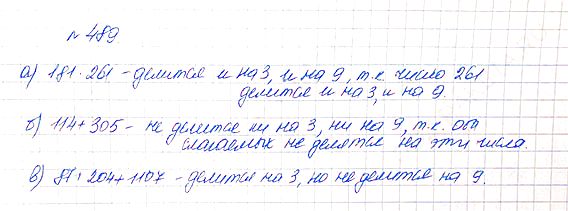 № 489
а) 181 · 261 - делится и на 3, и на 9, т.к. число 261
делится и на 3, и на 9.
б) 114 + 305 - не делится ни на 3, ни на 9, т.к. оба
слагаемых не делятся на эти числа.
в) 87 · 204 + 1107 - делится на 3, но не делится на 9.